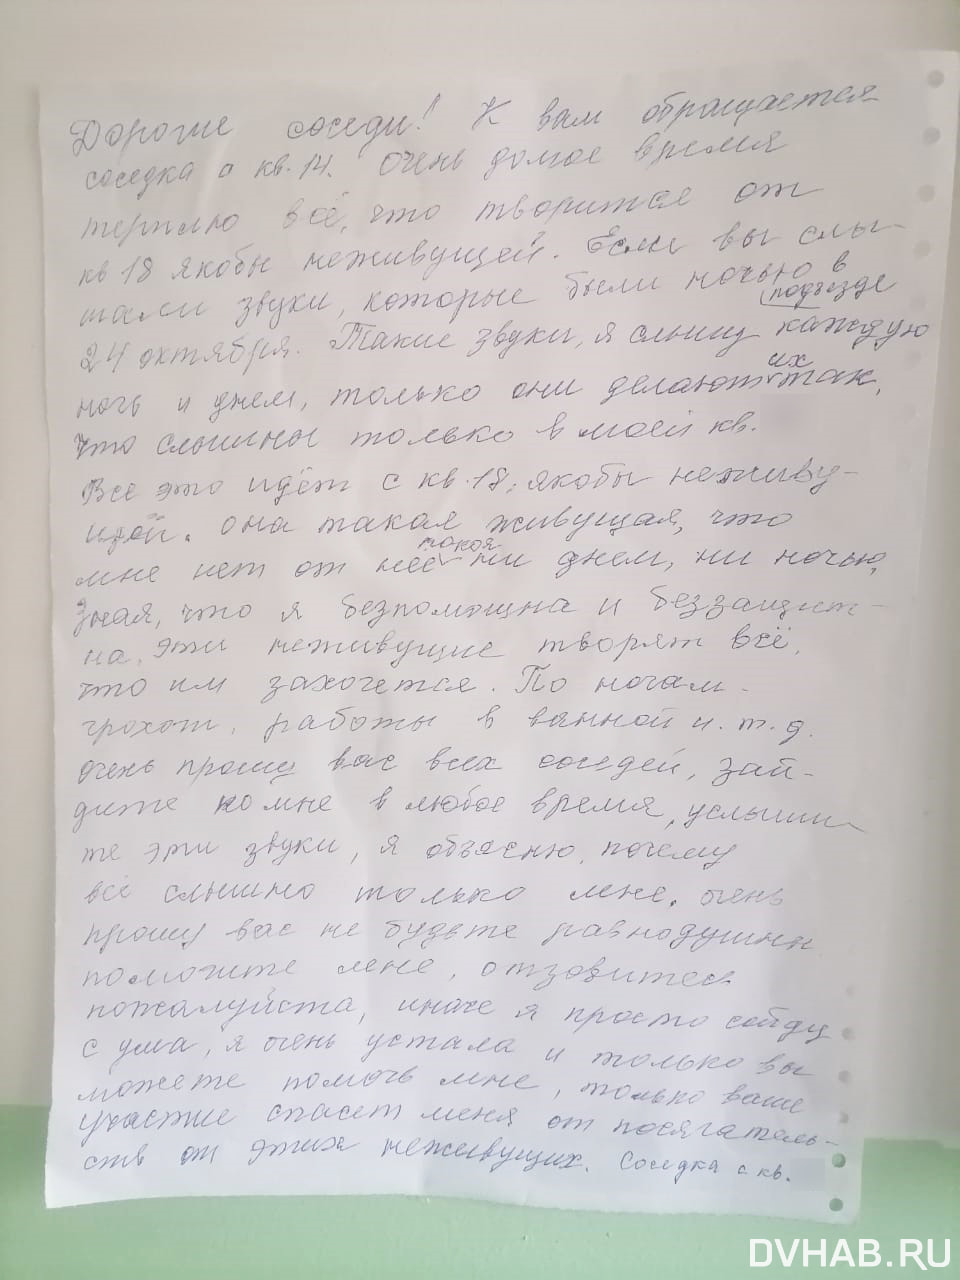 Дорогие соседи! К вам обращается
соседка с кв. 14. Очень долгое время
терплю всё, что творится от
кв 18 якобы неживущей. Если вы слы-
шали звуки, которые были ночью в
подъезде
24 октября. Такие звуки, я слышу каждую
их
ночь и днем, только они делают так,
что слышны только в моей кв.
Все это идёт с кв. 18, якобы неживу-
щей. Она такая живущая, что
покоя
мне нет от неё ни днем, ни ночью,
зная, что я беспомощна и беззащит-
на. Эти неживущие творят всё,
что им захочется. По ночам -
грохот, работы в ванной и. т. д.
Очень прошу вас всех соседей, зай-
дите ко мне в любое время, услыши-
те эти звуки, я объясню, почему
всё слышно только мне. Очень
прошу вас не будьте равнодушны
помогите мне, отзовитесь
пожалуйста, иначе я просто сойду
с ума, я очень устала и только вы
можете помочь мне, только ваше
участие спасет меня от посягатель-
ств от этих неживущих. Соседка с кв.
DVHAB.RU